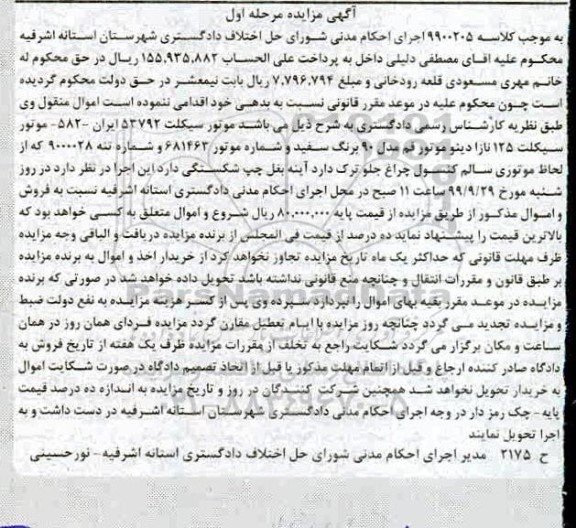 آگهی مزایده مرحله اول
به موجب کلاسه ۹۹۰۰۲۰۵ اجرای احکام مدنی شورای حل اختلاف دادگستری شهرستان استانه اشرفیه
محکوم علیه اقای مصطفی دلیلی داخل به پرداخت علی الحساب ۱۵۵,۹۳۵,۸۸۲ ریال در حق محکوم له
خانم مهری مسعودی قلعه رودخانی و مبلغ ۷,۷۹۶,۷۹۴ ریال بابت نیمعشر در حق دولت محکوم گردیده
است چون محکوم علیه در موعد مقرر قانونی نسبت به بدهی خود اقدامی ننموده است اموال منقول وی
طبق نظریه کارشناس رسمی دادگستری به شرح ذیل می باشد موتور سیکلت ۵۳۷۹۲ ایران -۵۸۲- موتور
سیکلت ۱۲۵ نازا دینو موتور قم مدل ۹۰ برنگ سفید و شماره موتور ۶۸۱۴۶۳ و شماره تنه ۹۰۰۰۰۲۸ که از
لحاظ موتوری سالم کنسول چراغ جلو ترک دارد آینه بغل چپ شکستگی دارد این اجرا در نظر دارد در روز
شنبه مورخ ۹۹/۹/۲۹ ساعت ۱۱ صبح در محل اجرای احکام مدنی دادگستری استانه اشرفیه نسبت به فروش
و اموال مذکور از طریق مزایده از قیمت پایه ۸۰,۰۰۰,۰۰۰ ریال شروع و اموال متعلق به کسی خواهد بود که
بالاترین قیمت را پیشنهاد نماید ده درصد از قیمت فی المجلس از برنده مزایده دریافت و الباقی وجه مزایده
ظرف مهلت قانونی که حداکثر یک ماه تاریخ مزایده تجاوز نخواهد کرد از خریدار اخذ و اموال به برنده مزایده
بر طبق قانون و مقررات انتقال و چنانچه منع قانونی نداشته باشد تحویل داده خواهد شد در صورتی که برنده
مزایده در موعد مقرر بقیه بهای اموال را نپردازد سپرده وی پس از کسر هزینه مزایده به نفع دولت ضبط
و مزایده تجدید می گردد چنانچه روز مزایده با ایام تعطیل مقارن گردد مزایده فردای همان روز در همان
ساعت و مکان برگزار می گردد شکایت راجع به تخلف از مقررات مزایده ظرف یک هفته از تاریخ فروش به
دادگاه صادر کننده ارجاع و قبل از اتمام مهلت مذکور یا قبل از اتخاذ تصمیم دادگاه در صورت شکایت اموال
به خریدار تحویل نخواهد شد همچنین شرکت کنندگان در روز و تاریخ مزایده به اندازه ده درصد قیمت
پایه - چک رمز دار در وجه اجرای احکام مدنی دادگستری شهرستان استانه اشرفیه در دست داشت و به
اجرا تحویل نمایند
ح ۲۱۷۵ مدیر اجرای احکام مدنی شورای حل اختلاف دادگستری استانه اشرفیه - نورحسینی